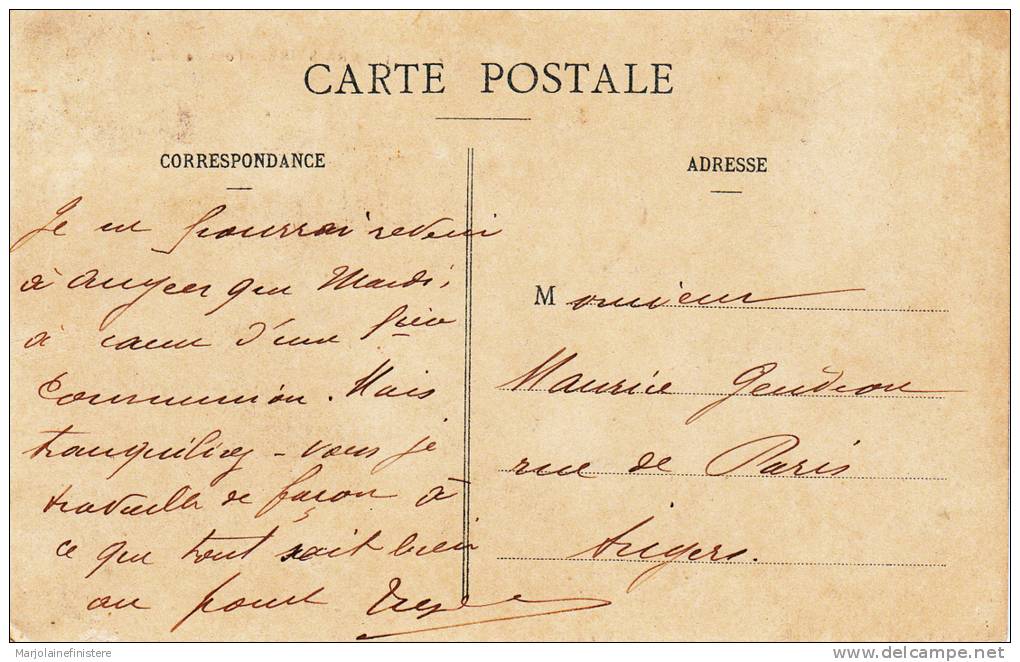 CARTE POSTALE
CORRESPONDANCE
ADRESSE
Je ne pourrai revenir
à Angers que Mardi,
à cause d'une 1ière
Communion. Mais
tranquilisez-vous je
travaille de façon à
ce que tout soit bien
au point
Monsieur
Maurice Gendron
rue de Paris
Angers.
Marjolainefinistere
delcampe.net